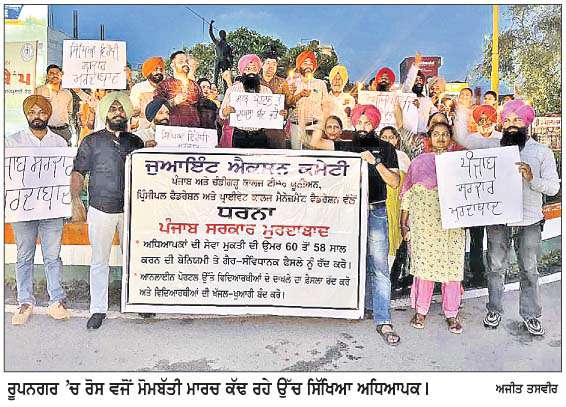 ਸਿੱਖਿਆ ਵਿਰੋਧੀ
ਸਰਕਾਰ
ਮੁਰਦਾਬਾਦ
ਪੰਜਾਬ ਸਰਕਾਰ
ਮੁਰਦਾਬਾਦ
ਪੰਜਾਬ
ਸਰਕਾਰ
ਮੁਰਦਾਬਾਦ
ਜੁਆਇੰਟ ਐਕਸ਼ਨ ਕਮੇਟੀ
ਪੰਜਾਬ ਅਤੇ ਚੰਡੀਗੜ੍ਹ ਕਾਲਜ ਟੀਚਰ ਯੂਨੀਅਨ,
ਪ੍ਰਿੰਸੀਪਲ ਫੈਡਰੇਸ਼ਨ ਅਤੇ ਪ੍ਰਾਈਵੇਟ ਕਾਲਜ ਮੈਨੇਜਮੈਂਟ ਫੈਡਰੇਸ਼ਨ ਵੱਲੋਂ
ਧਰਨਾ
ਪੰਜਾਬ ਸਰਕਾਰ ਮੁਰਦਾਬਾਦ
• ਅਧਿਆਪਕਾਂ ਦੀ ਸੇਵਾ ਮੁਕਤੀ ਦੀ ਉਮਰ 60 ਤੋਂ 58 ਸਾਲ
ਕਰਨ ਦੀ ਬੇਨਿਯਮੀ ਤੇ ਗੈਰ-ਸੰਵਿਧਾਨਕ ਫੈਸਲੇ ਨੂੰ ਰੱਦ ਕਰੋ।
• ਆਨਲਾਈਨ ਪੋਰਟਲ ਉੱਤੇ ਵਿਦਿਆਰਥੀਆਂ ਦੇ ਦਾਖਲੇ ਦਾ ਫੈਸਲਾ ਰੱਦ ਕਰੋ
ਅਤੇ ਵਿਦਿਆਰਥੀਆਂ ਦੀ ਖੱਜਲ-ਖੁਆਰੀ ਬੰਦ ਕਰੋ।
ਰੂਪਨਗਰ 'ਚ ਰੋਸ ਵਜੋਂ ਮੋਮਬੱਤੀ ਮਾਰਚ ਕੱਢ ਰਹੇ ਉੱਚ ਸਿੱਖਿਆ ਅਧਿਆਪਕ।
ਅਜੀਤ ਤਸਵੀਰ